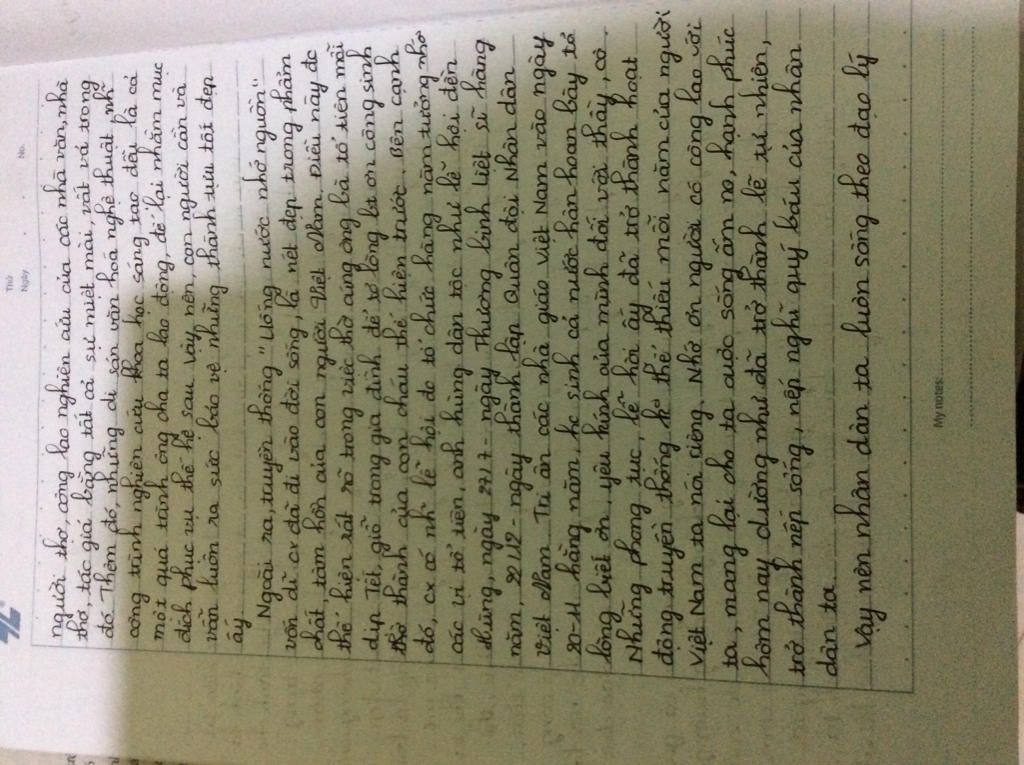 Thứ
Ngày
No.
người thợ, công lao nghiên cứu của các nhà văn, nhà
thơ, tác giả bằng tất cả sự miệt mài, vất vả trong
đó. Thêm đó, những di sản văn hoá nghệ thuật, nh~
công trình nghiên cứu khoa học sáng tạo đều là cả
một quá trình ông cha ta lao động, để lại nhằm mục
đích phục vụ thế hệ sau. Vậy nên, con người cần và
vẫn luôn ra sức bảo vệ những thành tựu tốt đẹp
ấy
Ngoài ra, truyền thống "Uống nước nhớ nguồn"
vốn dĩ cx đã đi vào đời sống, là nét đẹp trong phẩm
chất, tâm hồn của con người Việt Nam. Điều này đc
thể hiện rất rõ trong việc thờ cúng ông bà tổ tiên mỗi
dịp Tết, giỗ trong gia đình để tỏ lòng bt ơn công sinh
thành của con cháu thế hiện trước. Bên cạnh
đó, cx có nh~ lễ hội đc tổ chức hằng năm tưởng nhớ
các vị tổ tiên, anh hùng dân tộc như lễ hội đền
Hùng, ngày 27/7 - ngày Thương binh Liệt sĩ hằng
năm, 22/12 - ngày thành lập Quân đội Nhân dân
Việt Nam. Tri ân các nhà giáo Việt Nam vào ngày
20-11 hằng năm, học sinh cả nước hân hoan bày tỏ
lòng biết ơn, yêu kính của mình đối với thầy, cô.
Những phong tục, lễ hội ấy đã trở thành hoạt
động truyền thống k thể thiếu mỗi năm của người
Việt Nam ta nói riêng. Nhớ ơn người có công lao với
ta, mang lại cho ta cuộc sống ấm no, hạnh phúc
hôm nay dường như đã trở thành lẽ tự nhiên,
trở thành nếp sống, nếp nghĩ quý báu của nhân
dân ta
Vậy nên nhân dân ta luôn sống theo đạo lý
My notes: